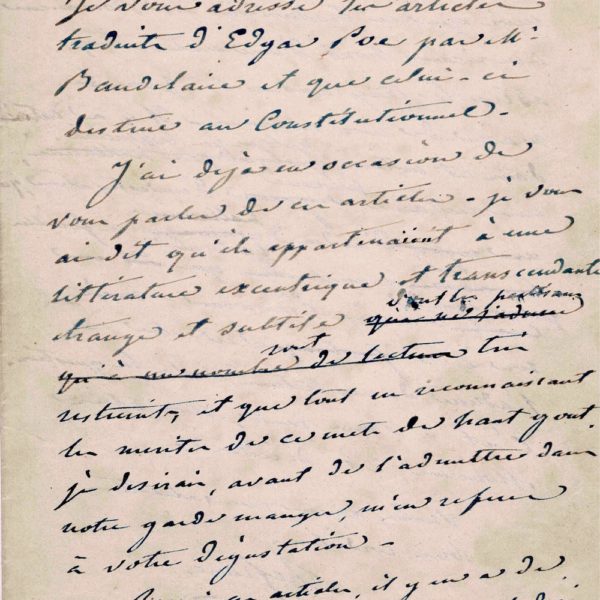 Je vous adresse les articles
traduits d'Edgar Poe par Mr
Baudelaire et que celui-ci
destine au Constitutionnel.
J'ai déjà eu occasion de
vous parler de ces articles - je vous
ai dit qu'ils appartenaient à une
littérature excentrique et transcendante
étrange et subtile dont les partisans
qui ne s'adresse
sont
qu'à un nombre de lecteurs très
restreints, et que tout en reconnaissant
les mérites de ce mets de haut gout.
je desirais, avant de l'admettre dans
notre garde manger, m'en referer
à votre dégustation -
articles, il y en a de